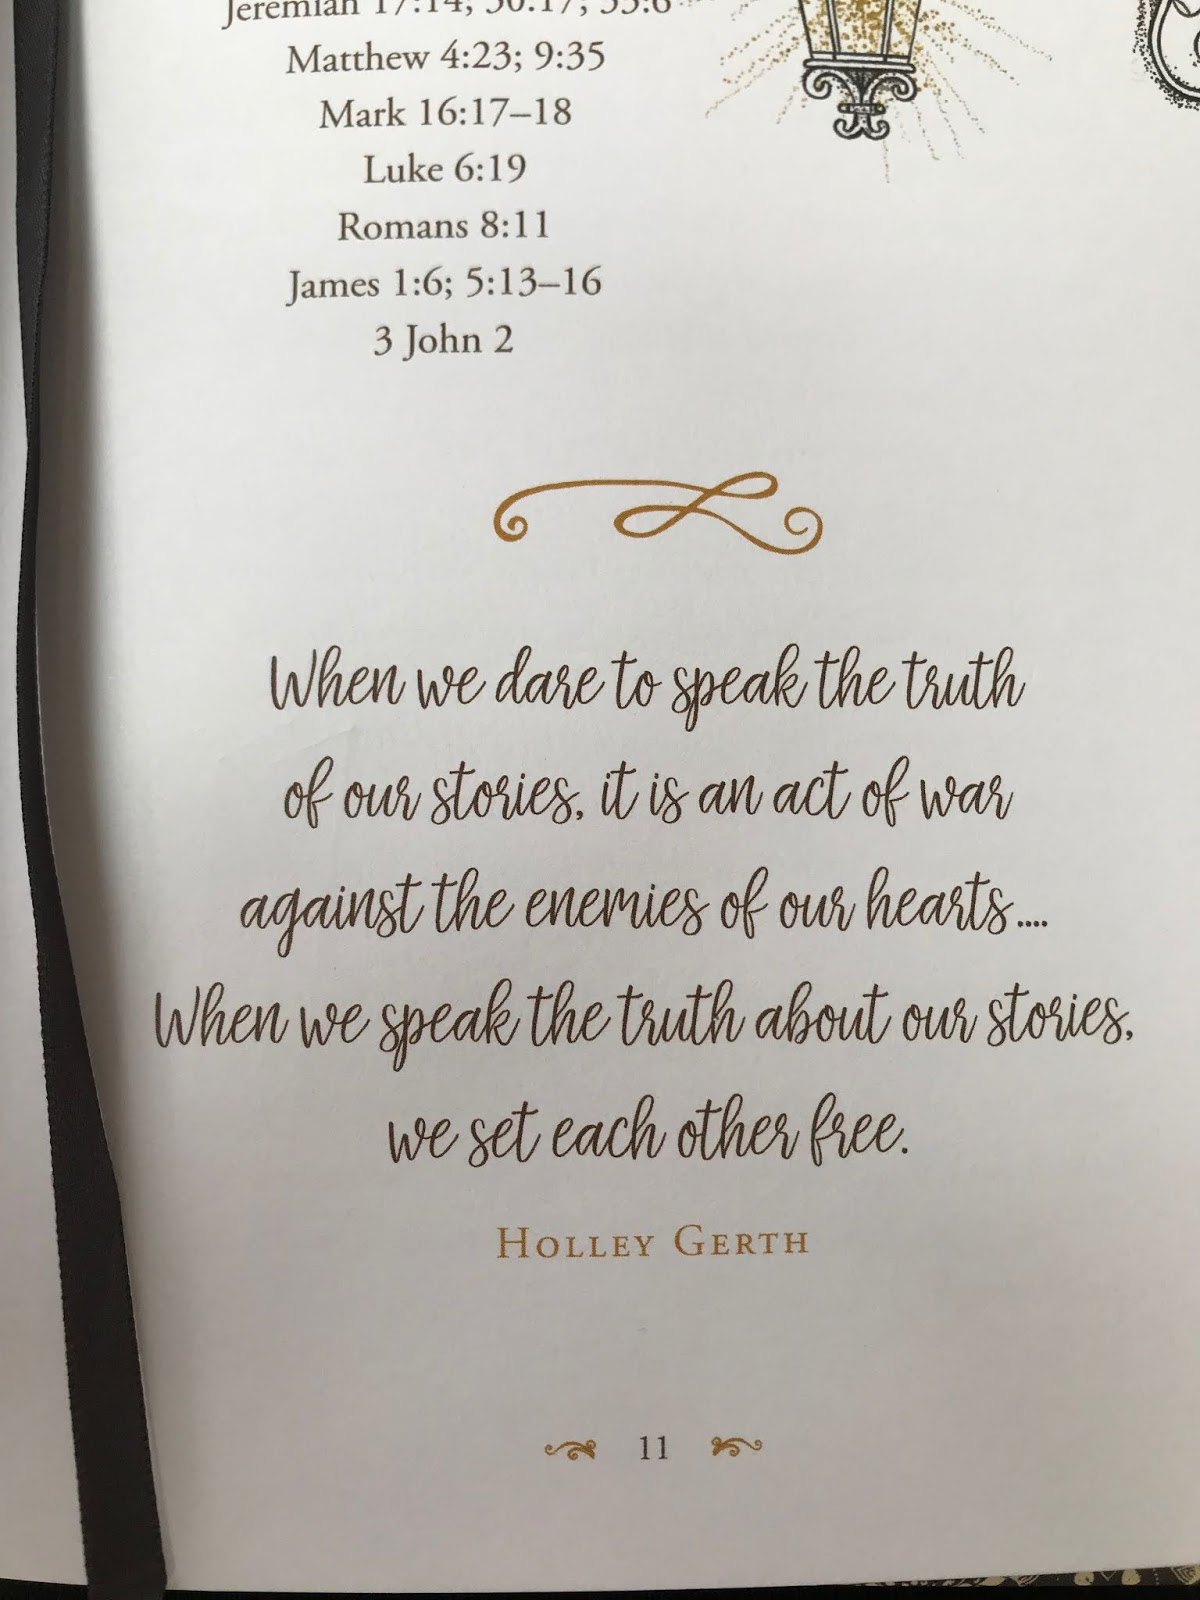 Jeremiah 17:14; 30:17; 33:6
Matthew 4:23; 9:35
Mark 16:17–18
Luke 6:19
Romans 8:11
James 1:6; 5:13–16
3 John 2
When we dare to speak the truth
of our stories, it is an act of war
against the enemies of our hearts....
When we speak the truth about our stories,
we set each other free.
Holley Gerth
11